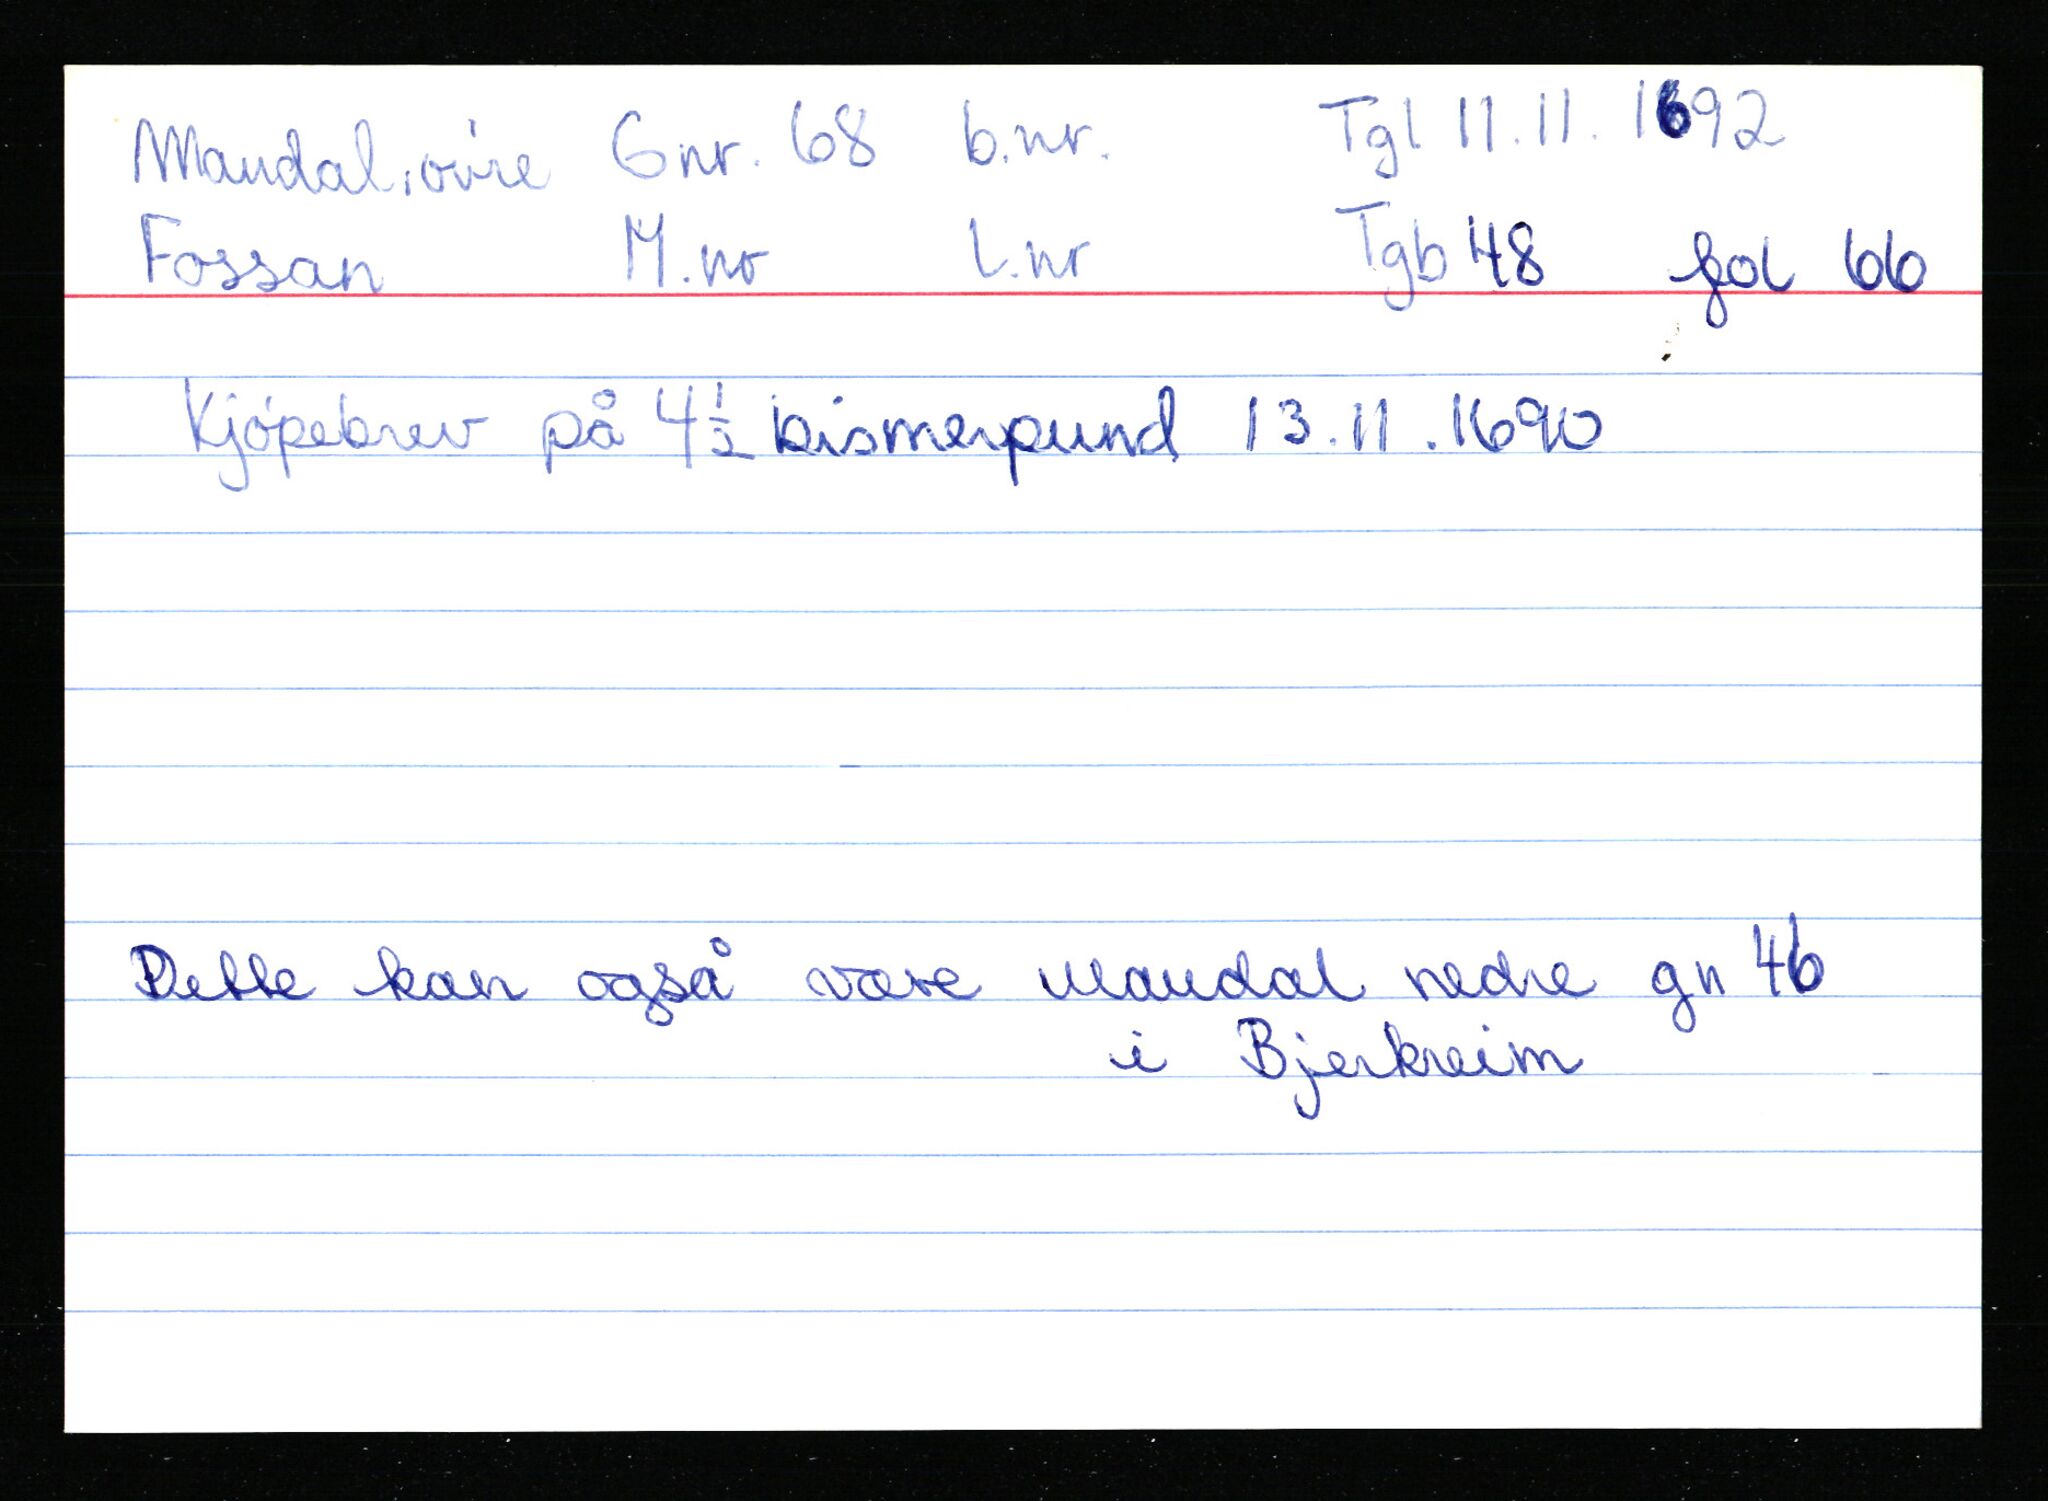 Maudal, øvre Gnr. 68 b.nr. Tgl 11.11.1692
Fossan M.nr L.nr Tgb 48 fol 66
Kjöpebrev på 4½ bismerpund 13.11.1690
Dette kan også være Maudal nedre gn 46
i Bjerkreim